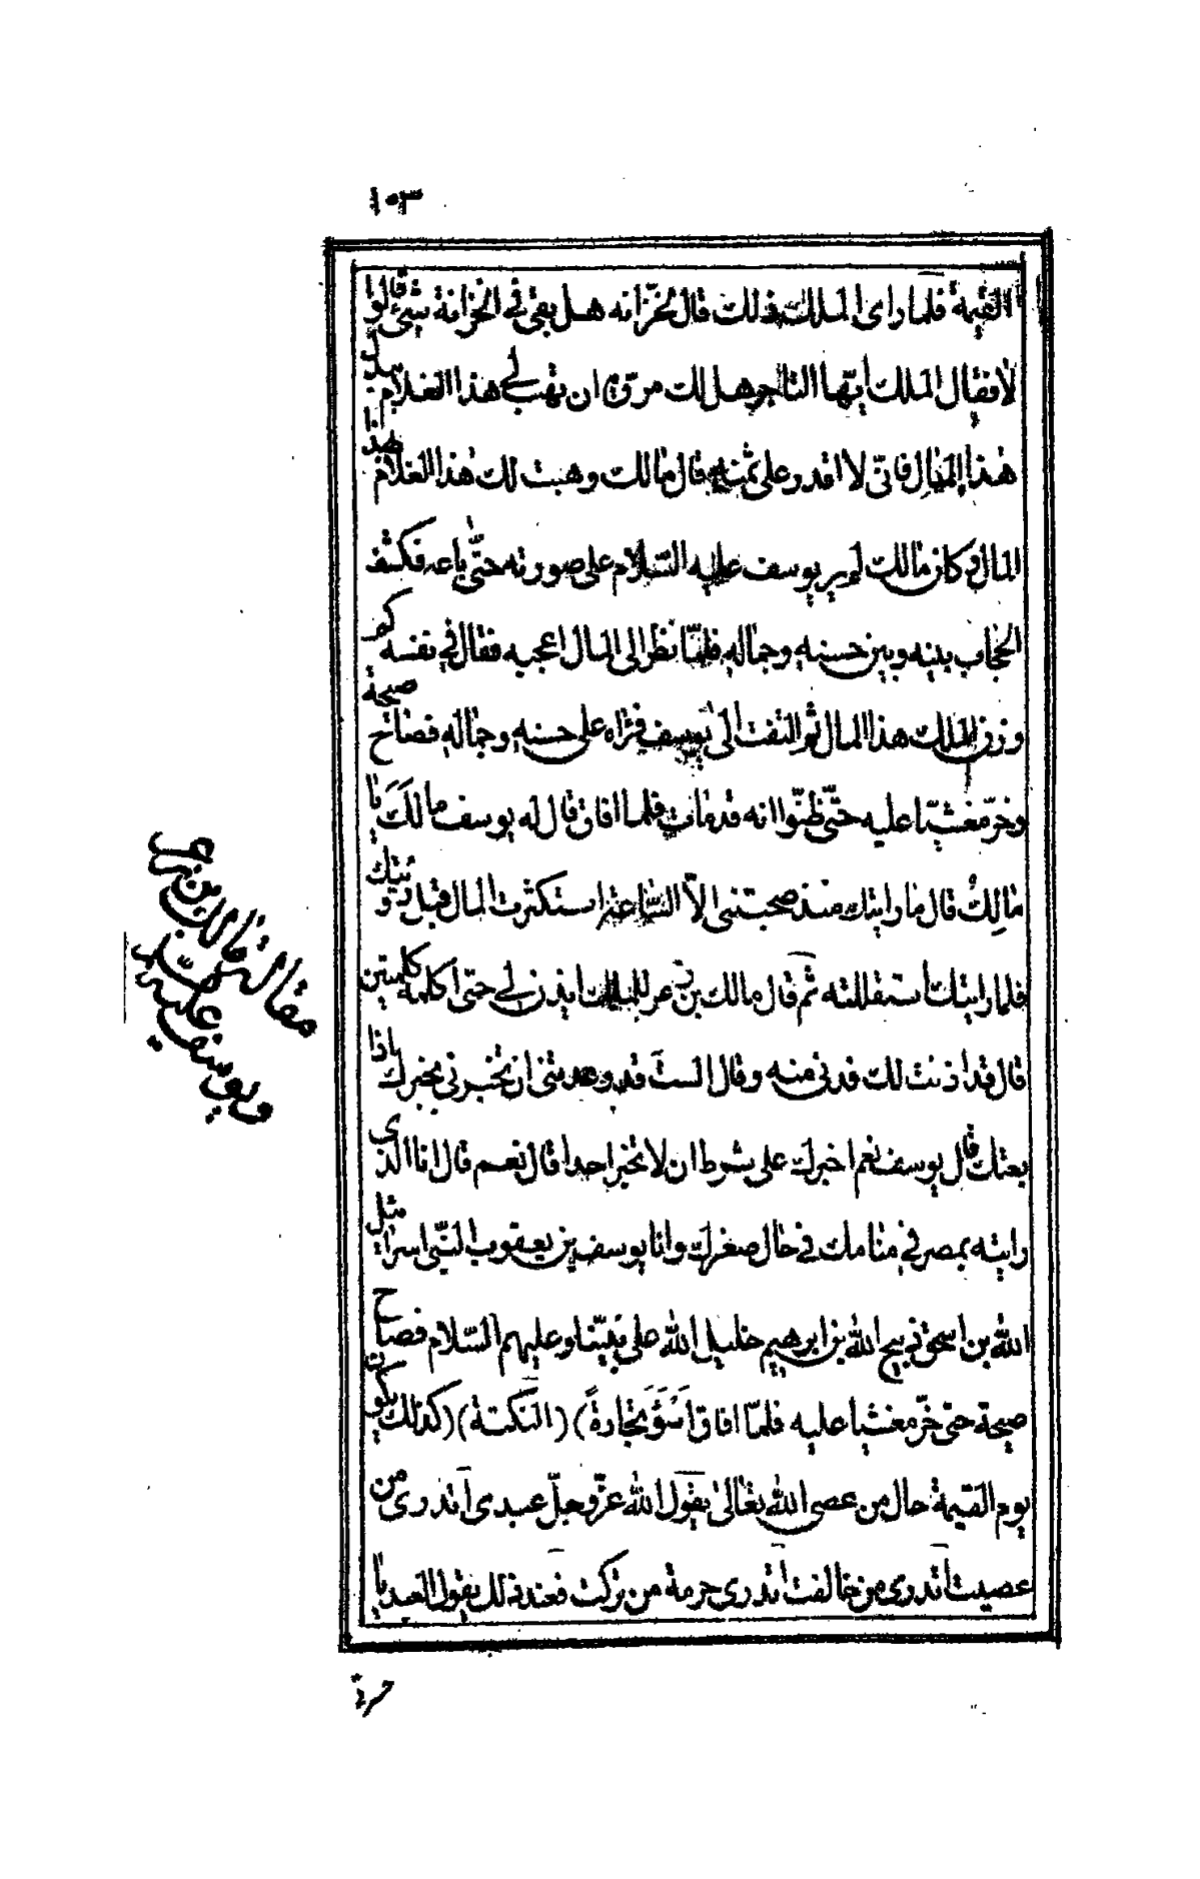 ١٠٣
القيمة فلما راى الملك ذلك قال لخزانه هل بقى فى الخزانة شئ قالوا
لا فقال الملك ايها التاجر هل لك مروة ان تهب لى هذا الغلام بدل
هذا المال فانى لا اقدر على ثمنه قال مالك وهبت لك هذا الغلام بهذا
المال وكان مالك لم ير يوسف عليه السلام على صورته حتى باعه فكشف
الحجاب بينه وبين حسنه وجماله فلما نظر الى المال اعجبه فقال فى نفسه كم
وزن الملك هذا المال ثم التفت الى يوسف فراه على حسنه وجماله فصاح صيحة
وخر مغشيا عليه حتى ظنوا انه قد مات فلما افاق قال له يوسف مالك يا
مالك قال ما رايتك منذ صحبتنى الا الساعة استكثرت المال قبل رؤيتك
فلما رايتك استقللته ثم قال مالك بن زعر للملك ايذن لى حتى اكلمه كلمتين
قال قد اذنت لك فدنى منه وقال الست قد وعدتنى ان تخبرنى بخبرك اذا
بعتك قال يوسف نعم اخبرك على شرط ان لا تخبر احدا قال نعم قال انا الذى
رايته بمصر فى منامك فى حال صغرك وانا يوسف بن يعقوب النبى اسرائيل
الله بن اسحق ذبيح الله بن ابرهيم خليل الله على نبينا وعليهم السلام فصاح
صيحة حتى خر مغشيا عليه فلما افاق اسوء تجارة) (النكتة) (كذلك يكون
يوم القيمة حال من عصى الله تعالى يقول الله عز وجل عبدى أتدرى من
عصيت أتدرى من خالفت أتدرى حرمة من تركت فعند ذلك يقول العبد يا
حسرة
مقالة مالك بن زعر
ويوسف عليه السلام